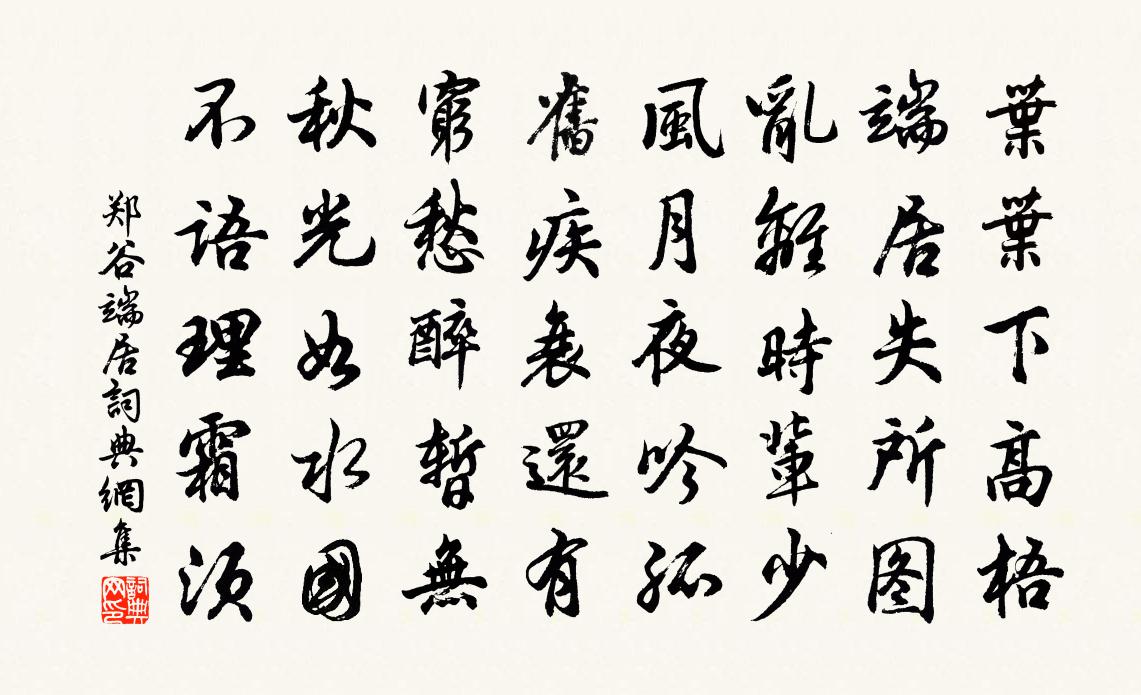 葉葉下高梧
端居失所图
亂離時輩少
風月夜吟孤
舊疾衰還有
窮愁醉暫無
秋光如水國
不語理霜須
郑谷端居詞典網集
詞典网印